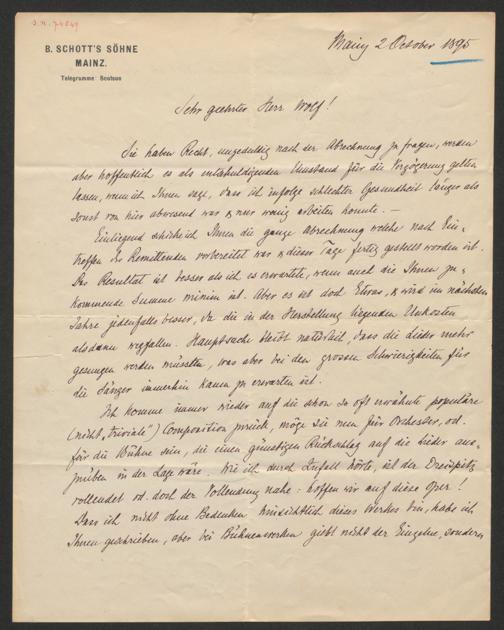 B. SCHOTT'S SÖHNE
MAINZ.
Telegramme: Scotson
Mainz 2 October 1895
Sehr geehrter Herr Wolf!
Sie haben Recht, ungeduldig nach der Abrechnung zu fragen, werden
aber hoffentlich es als entschuldigenden Umstand für die Verzögerung gelten
lassen, wenn ich Ihnen sage, dass ich infolge schlechter Gesundheit länger als
sonst von hier abwesend war & nur wenig arbeiten konnte. —
Einliegend schicke ich Ihnen die ganze Abrechnung welche nach Ein-
treffen der Remittenden vorbereitet war & dieser Tage fertig gestellt worden ist.
Das Resultat ist besser als ich es erwartete, wenn auch die Ihnen zu-
kommende Summe minim ist. Aber es ist doch Etwas, & wird im nächsten
Jahre jedenfalls besser, da die in der Herstellung liegenden Unkosten
alsdann wegfallen. Hauptsache bleibt natürlich, dass die Lieder mehr
gesungen werden müssten, was aber bei den grossen Schwierigkeiten für
die Sänger immerhin kaum zu erwarten ist.
Ich komme immer wieder auf die schon so oft erwähnte populäre
(nicht „triviale") Composition zurück, möge sie nun für Orchester, od.
für die Bühne sein, die einen günstigen Rückschlag auf die Lieder aus-
zuüben in der Lage wäre. Wie ich durch Zufall hörte, ist der Dreispitz
vollendet od. doch der Vollendung nahe: hoffen wir auf diese Oper!
Dass ich nicht ohne Bedenken hinsichtlich dieses Werkes bin, habe ich
Ihnen geschrieben, aber bei Bühnenwerken giebt nicht der Einzelne, sondern